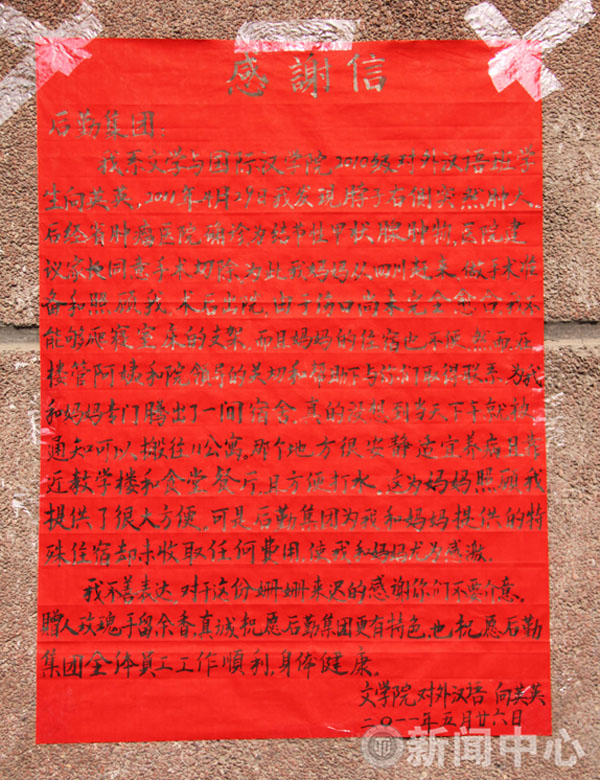 感謝信
后勤集团：
我系文学与国际汉学院2010级对外汉语班学
生向英英，2011年4月29日我发现脖子右侧突然肿大。
后经省肿瘤医院，确诊为结节性甲状腺肿物，医院建
议家长同意手术切除，为此我妈妈从四川赶来，做手术准
备和照顾我，术后出院，由于伤口尚未完全愈合，我不
能够爬寝室床的支架，而且妈妈的住宿也不便，然而在
楼管阿姨和院领导的关切和帮助下与你们取得联系，为我
和妈妈专门腾出了一间宿舍，真的没想到当天下午就被
通知可以搬往11公寓。那个地方很安静适宜养病且靠
近教学楼和食堂、餐厅，且方便打水，这为妈妈照顾我
提供了很大方便，可是后勤集团为我和妈妈提供的特
殊住宿却未收取任何费用，使我和妈妈尤为感激。
我不善表达，对于这份姗姗来迟的感谢你们不要介意。
赠人玫瑰手留余香，真诚祝愿后勤集团更有特色，也祝愿后勤
集团全体员工工作順利，身体健康。
文学院对外汉语 向英英
二〇一一年五月廿六日
新闻中心